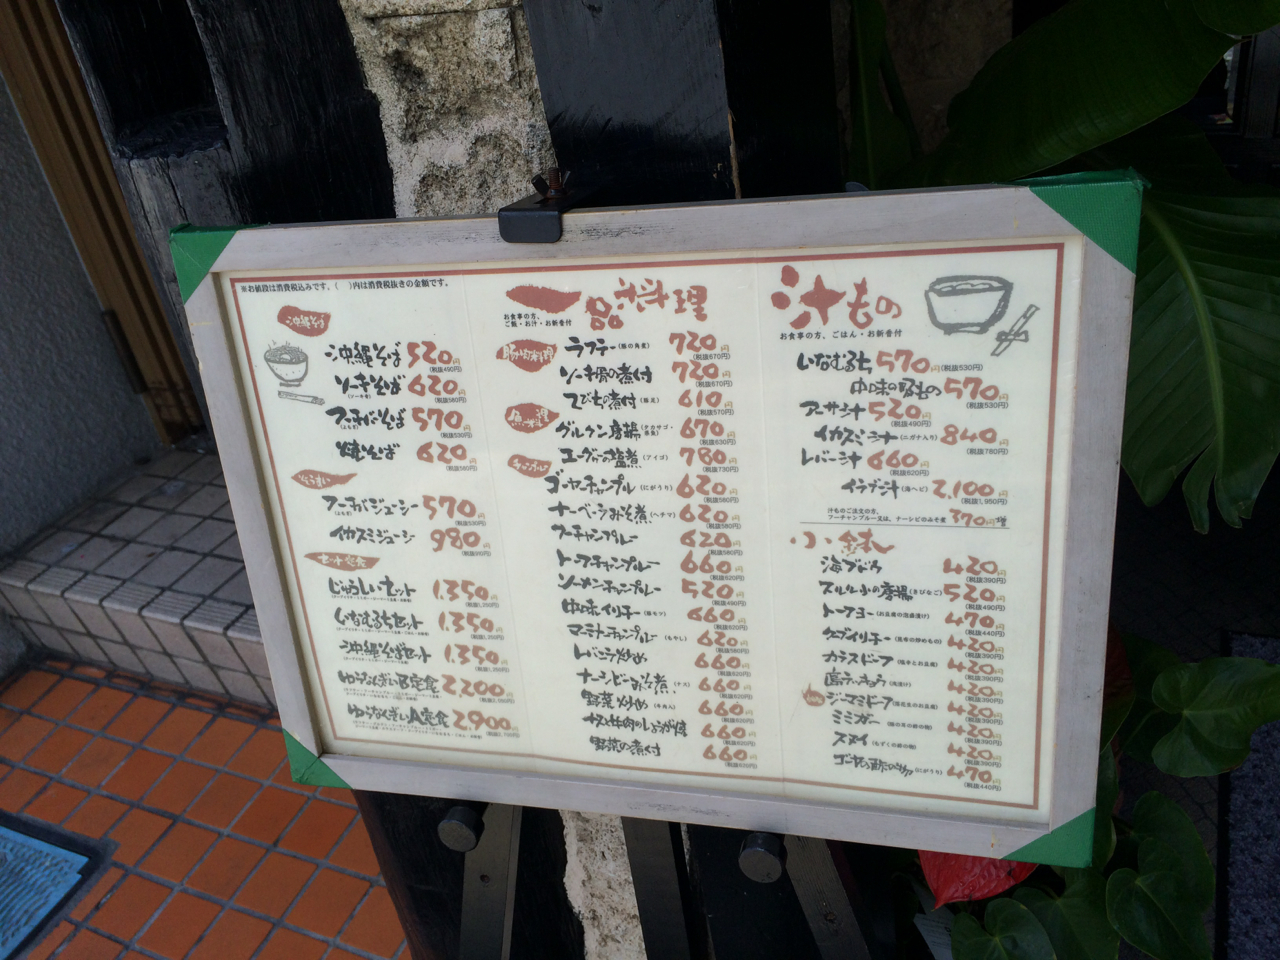 ※お値段は消費税込みです。( )内は消費税抜きの金額です。
沖縄そば
沖縄そば 520円 (税抜490円)
ソーキそば 620円 (税抜580円)
フーチバそば (よもぎ) 570円 (税抜530円)
焼そば 620円 (税抜580円)
ぞうすい
フーチバジューシー (よもぎ) 570円 (税抜530円)
イカスミジューシー 980円 (税抜910円)
セット定食
じゅうしいセット 1,350円 (税抜1,250円)
いなむるちセット 1,350円 (税抜1,250円)
沖縄そばセット 1,350円 (税抜1,250円)
ゆうなんぎぃB定食 2,200円
ゆうなんぎぃA定食 2,900円
一品料理
お食事の方、
ご飯・お汁・お新香付
豚肉料理
ラフテー (豚の角煮) 720円 (税抜670円)
ソーキ骨の煮付 720円 (税抜670円)
てびちの煮付 (豚足) 610円 (税抜570円)
魚料理
グルクン唐揚 (タカサゴ・県魚) 670円 (税抜630円)
エーグァーの塩煮 (アイゴ) 780円 (税抜730円)
チャンプルー
ゴーヤーチャンプル (にがうり) 620円 (税抜580円)
ナーベーラみそ煮 (ヘチマ) 620円 (税抜580円)
フーチャンプルー 620円 (税抜580円)
トーフチャンプルー 660円 (税抜620円)
ソーメンチャンプルー 520円 (税抜490円)
中味イリチー (豚モツ) 660円 (税抜620円)
マーミナチャンプルー (もやし) 620円 (税抜580円)
レバニラ炒め 660円 (税抜620円)
ナーシビーみそ煮 (ナス) 660円 (税抜620円)
野菜炒め (牛肉入) 660円 (税抜620円)
ナスと牛肉のしょうが焼 660円 (税抜620円)
野菜の煮付 660円 (税抜620円)
汁もの
お食事の方、ごはん・お新香付
いなむるち 570円 (税抜530円)
中味の吸もの 570円 (税抜530円)
アーサ汁 520円 (税抜490円)
イカスミ汁 (ニガナ入り) 840円 (税抜780円)
レバー汁 660円 (税抜620円)
イラブ汁 (海ヘビ) 2,100円 (税抜1,950円)
汁ものご注文の方、
フーチャンプルー又は、ナーシビのみそ煮 370円増
小鉢
海ブドウ 420円 (税抜390円)
スルル小の唐揚 (きびなご) 520円 (税抜490円)
トーフヨー (お豆腐の泡盛漬け) 470円 (税抜440円)
クーブイリチー (昆布の炒めもの) 420円 (税抜390円)
カラスドーフ (塩辛とお豆腐) 420円 (税抜390円)
島ラッキョウ (浅漬け) 420円 (税抜390円)
ジーマミドーフ (落花生のお豆腐) 420円 (税抜390円)
ミミガー (豚の耳の酢の物) 420円 (税抜390円)
スヌイ (もずくの酢の物) 420円 (税抜390円)
(にがうり) 470円 (税抜440円)